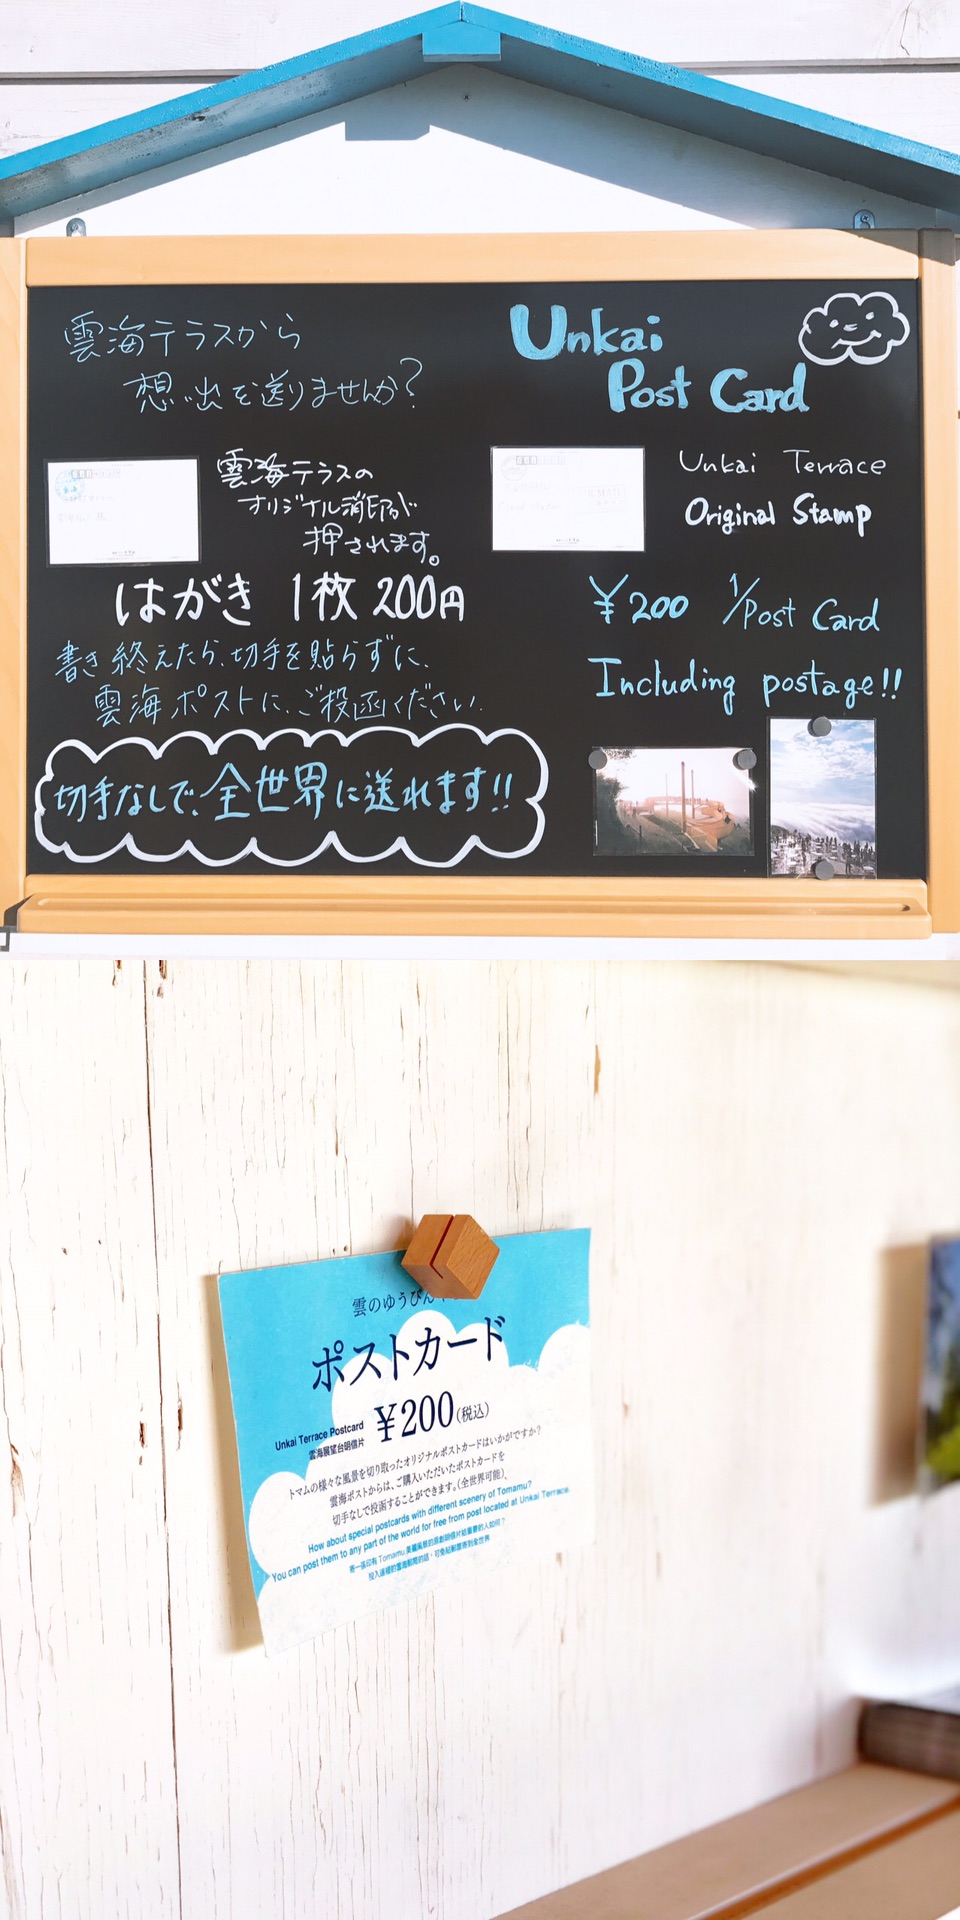 雲海テラスから
想い出を送りませんか?
雲海テラスの
オリジナル消印が
押されます。
はがき 1枚 200円
書き終えたら、切手を貼らずに、
雲海ポストに、ご投函ください。
切手なしで、全世界に送れます!!
Unkai
Post Card
Unkai Terrace
Original Stamp
¥200 1/Post Card
Including postage!!
雲のゆうびん
ポストカード
Unkai Terrace Postcard
雲海展望台明信片
¥200(税込)
トマムの様々な風景を切り取ったオリジナルポストカードはいかがですか?
雲海ポストからは、ご購入いただいたポストカードを
切手なしで投函することができます。(全世界可能)、
How about special postcards with different scenery of Tomamu?
You can post them to any part of the world for free from post located at Unkai Terrace.